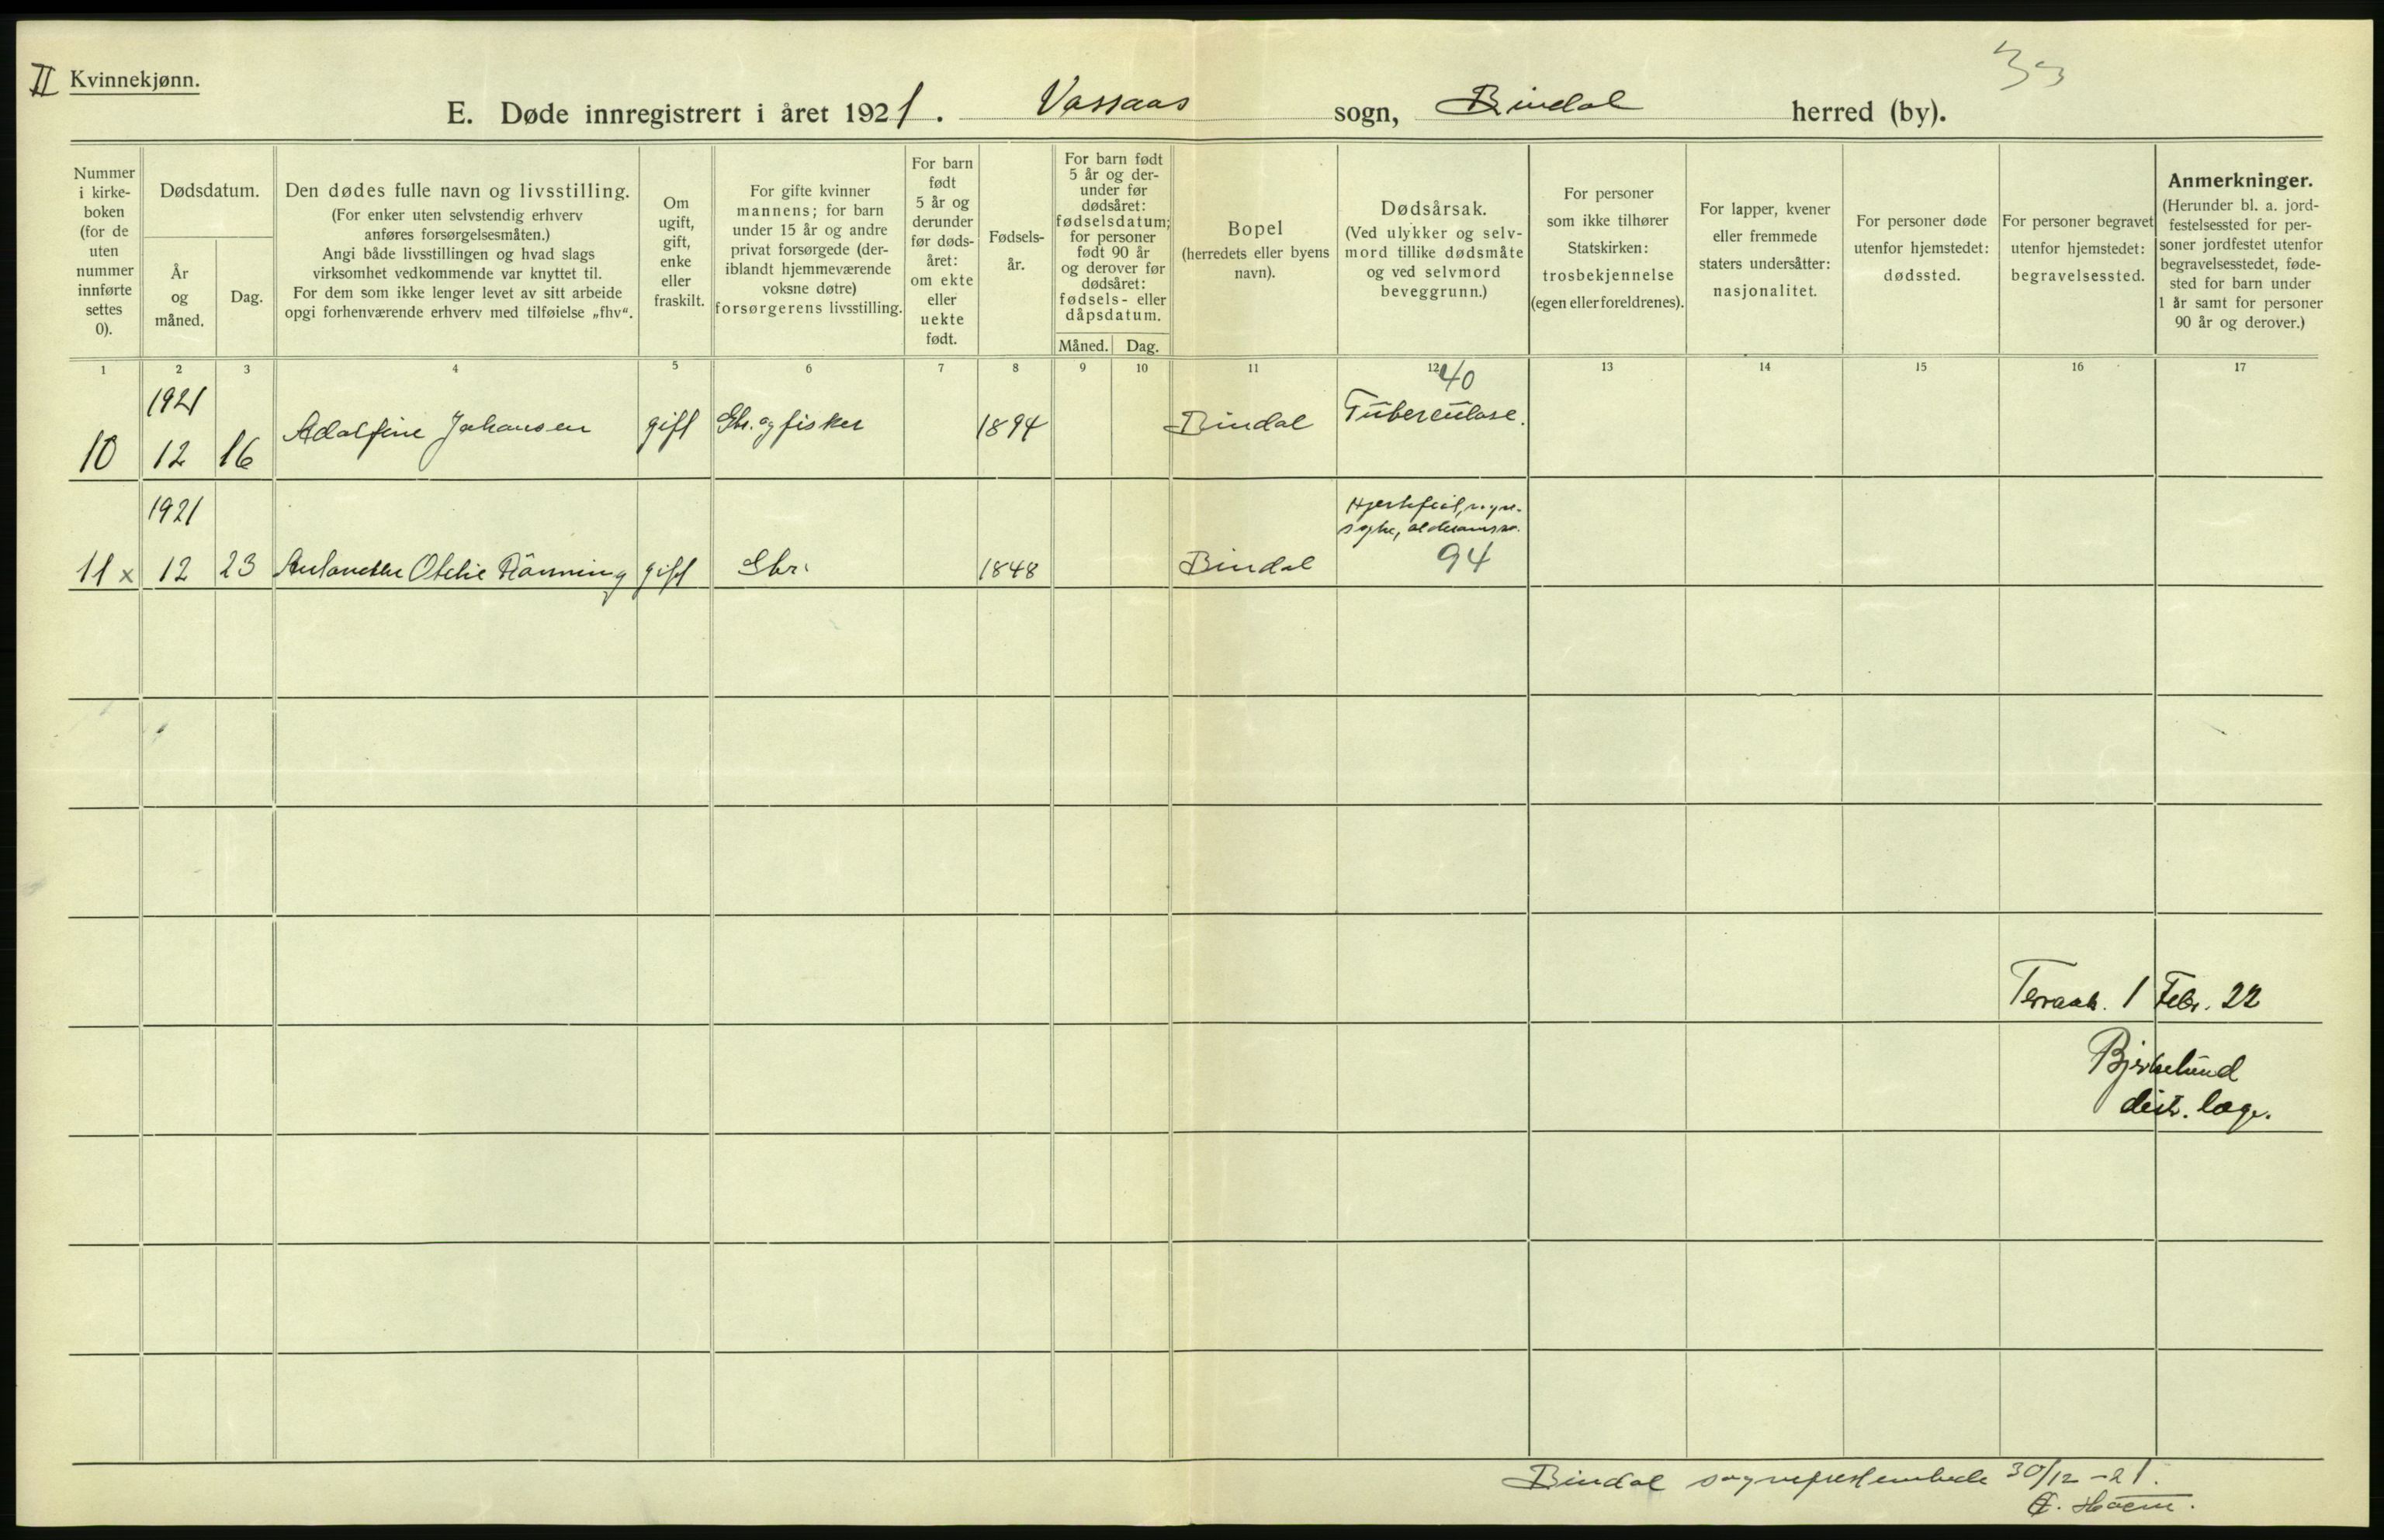 II Kvinnekjønn.
33
E. Døde innregistrert i året 1921. Vassaas sogn, Bindal herred (by).
Nummer
i kirke-
boken
(for de
uten
nummer
innførte
settes
0).
Dødsdatum.
År
og
måned.
Dag.
Den dødes fulle navn og livsstilling.
(For enker uten selvstendig erhverv
anføres forsørgelsesmåten.)
Angi både livsstillingen og hvad slags
virksomhet vedkommende var knyttet til.
For dem som ikke lenger levet av sitt arbeide
opgi forhenværende erhverv med tilføielse „fhv“.
Om
ugift,
gift,
enke
eller
fraskilt.
For gifte kvinner
mannens; for barn
under 15 år og andre
privat forsørgede (der-
iblandt hjemmeværende
voksne døtre)
forsørgerens livsstilling.
For barn
født
5 år og
derunder
før døds-
året:
om ekte
eller
uekte
født.
Fødsels-
år.
For barn født
5 år og der-
under før
dødsåret:
fødselsdatum;
for personer
født 90 år
og derover før
dødsåret:
fødsels- eller
dåpsdatum.
Måned. Dag.
Bopel
(herredets eller byens
navn).
Dødsårsak.
(Ved ulykker og selv-
mord tillike dødsmåte
og ved selvmord
beveggrunn.)
For personer
som ikke tilhører
Statskirken:
trosbekjennelse
(egen eller foreldrenes).
For lapper, kvener
eller fremmede
staters undersåtter:
nasjonalitet.
For personer døde
utenfor hjemstedet:
dødssted.
For personer begravet
utenfor hjemstedet:
begravelsessted.
Anmerkninger.
(Herunder bl. a. jord-
festelsessted for per-
soner jordfestet utenfor
begravelsesstedet, føde-
sted for barn under
1 år samt for personer
90 år og derover.)
1 2 3 4 5 6 7 8 9 10 11 12 13 14 15 16 17
40
1921
10 12 16 Adolfine Johansen gift Gbr. og fisker 1894 Bindal Tuberculose.
1921
Hjertefeil,
94
11 x 12 23 Otelie Rönning gift Gbr. 1848 Bindal
Terraak. 1 Febr. 22
Bjerkelund
distr. læge.
Bindal sogneprestembede 30/12 - 21.